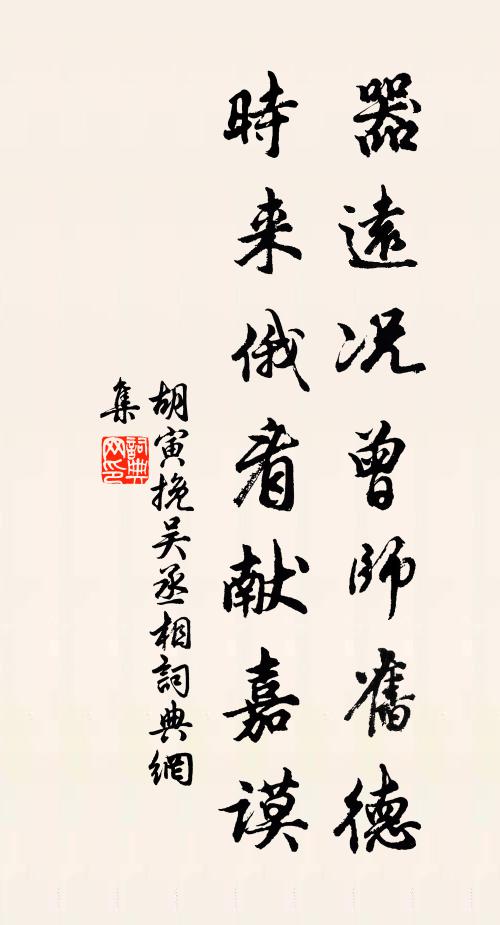 器遠况曾師舊德
時来俄看献嘉謨
胡寅挽吴丞相詞典網
集
詞典网印